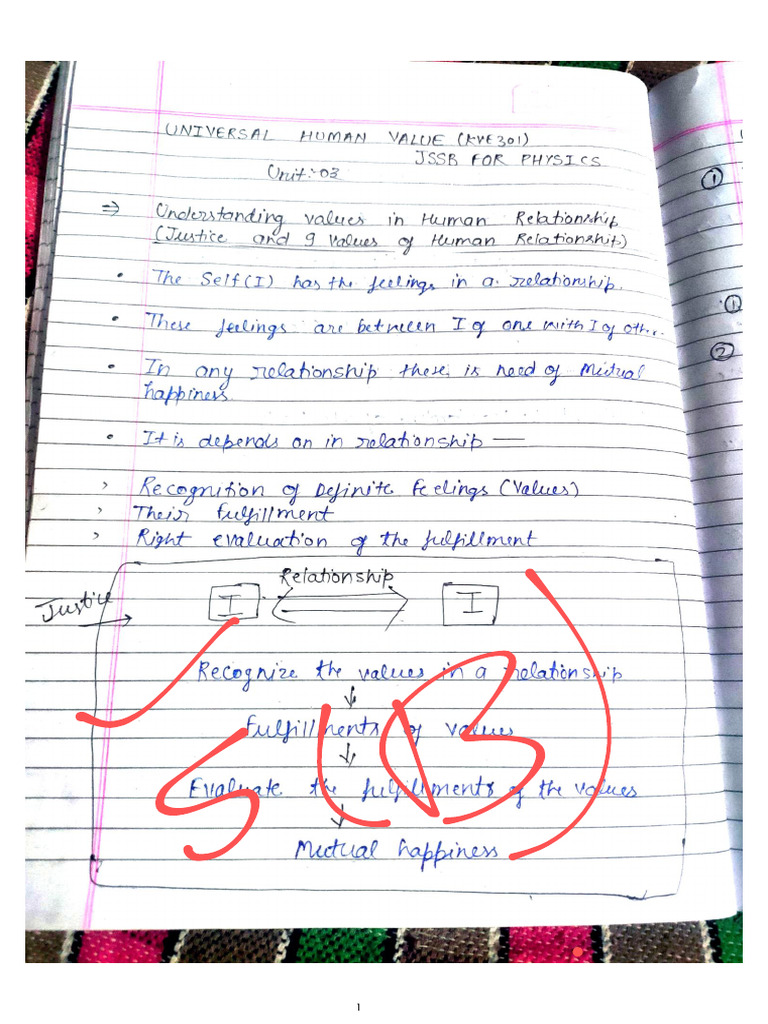 UNIVERSAL HUMAN VALUE (KVE301)
JSSB FOR PHYSICS
Unit:-03
⇒ Understanding values in Human Relationship
(Justice and 9 values of Human Relationship)
• The Self(I) has the feelings in a relationship.
• These feelings are between I of one with I of other.
• In any relationship these is need of Mutual
happiness
• It is depends on in relationship —
> Recognition of Definite Feelings (Values)
> Their fulfillment
> Right evaluation of the fulfillment
Relationship
Justice → I I
Recognize the values in a relationship
↓
fulfillments of values
↓
Evaluate the fulfillments of the values
↓
Mutual happiness
①
①
②
1